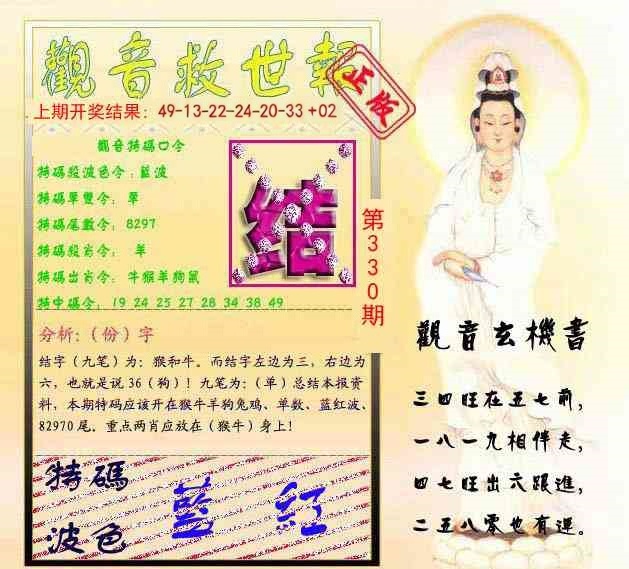 觀音救世報
正版
上期开奖结果：49-13-22-24-20-33 +02
觀音特碼口令
特碼段波色令：藍波
特碼單雙令： 單
特碼尾數令： 8297
特碼段肖令： 單
特碼出肖令： 牛猴羊狗鼠
特中碼令： 19 24 25 27 28 34 38 49
结
第330期
分析：（份）字
结字（九笔）为：猴和牛。而结字左边为三，右边为
六，也就是说 36（狗）！九笔为：（单）总结本报资
料，本期特码应该开在猴牛羊狗兔鸡、单数、蓝红波、
82970 尾。重点两肖应放在（猴牛）身上！
特碼
波色
藍 紅
觀音玄機書
三四旺在五七前，
一八一九相伴走，
四七旺出六跟進，
二五八零也有運。